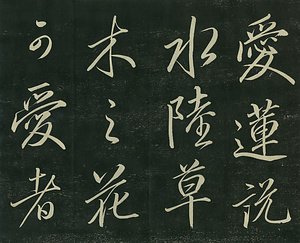 愛蓮説
水陸草
木之花
可愛者